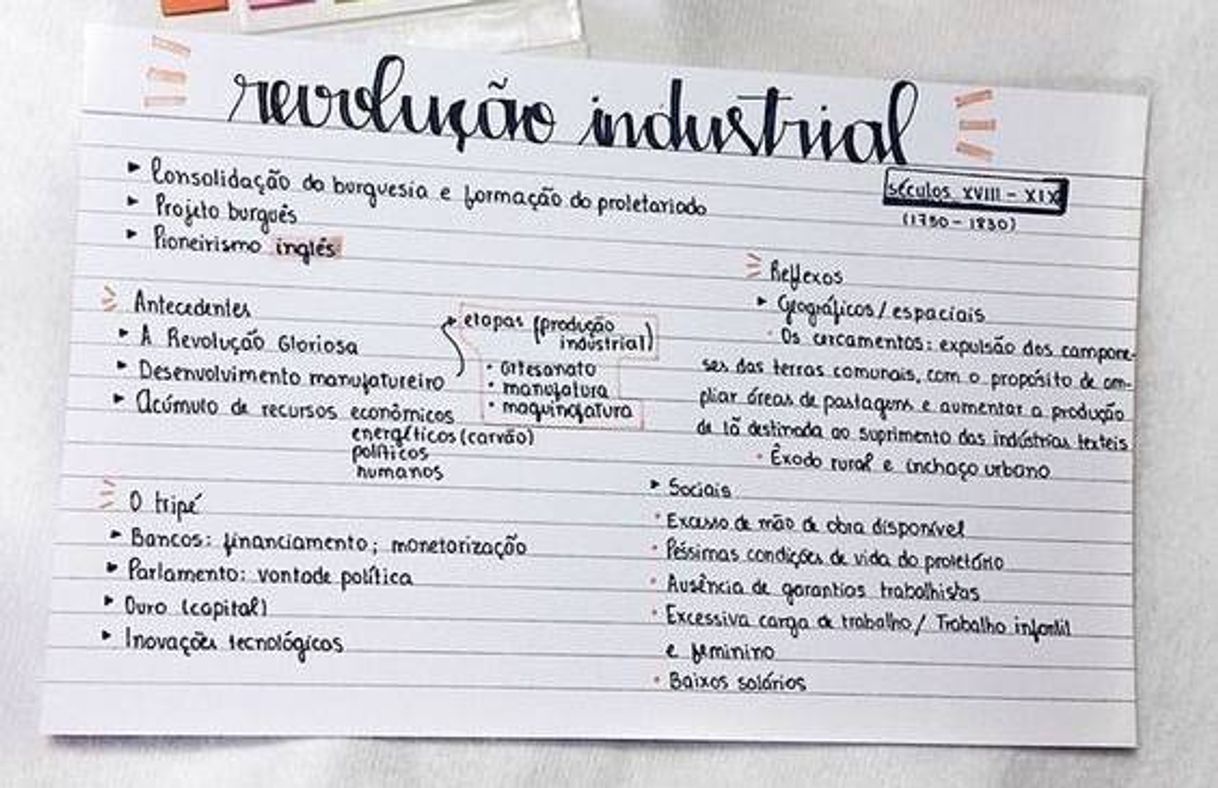 revolução industrial
séculos XVIII - XIX
(1750 - 1830)
Consolidação da burguesia e formação do proletariado
Projeto burguês
Pioneirismo inglês
Antecedentes
A Revolução Gloriosa
Desenvolvimento manufatureiro
Acúmulo de recursos econômicos
energéticos (carvão)
políticos
humanos
etapas (produção
industrial)
artesanato
manufatura
maquinofatura
O tripé
Bancos: financiamento; monetarização
Parlamento: vontade política
Ouro (capital)
Inovações tecnológicas
Reflexos
Geográficos/espaciais
Os cercamentos: expulsão dos campone-
ses das terras comunais, com o propósito de am-
pliar áreas de pastagens e aumentar a produção
de lã destinada ao suprimento das indústrias texteis
Êxodo rural e inchaço urbano
Sociais
Excesso de mão de obra disponível
Péssimas condições de vida do proletário
Ausência de garantias trabalhistas
Excessiva carga de trabalho / Trabalho infantil
e feminino
Baixos salários